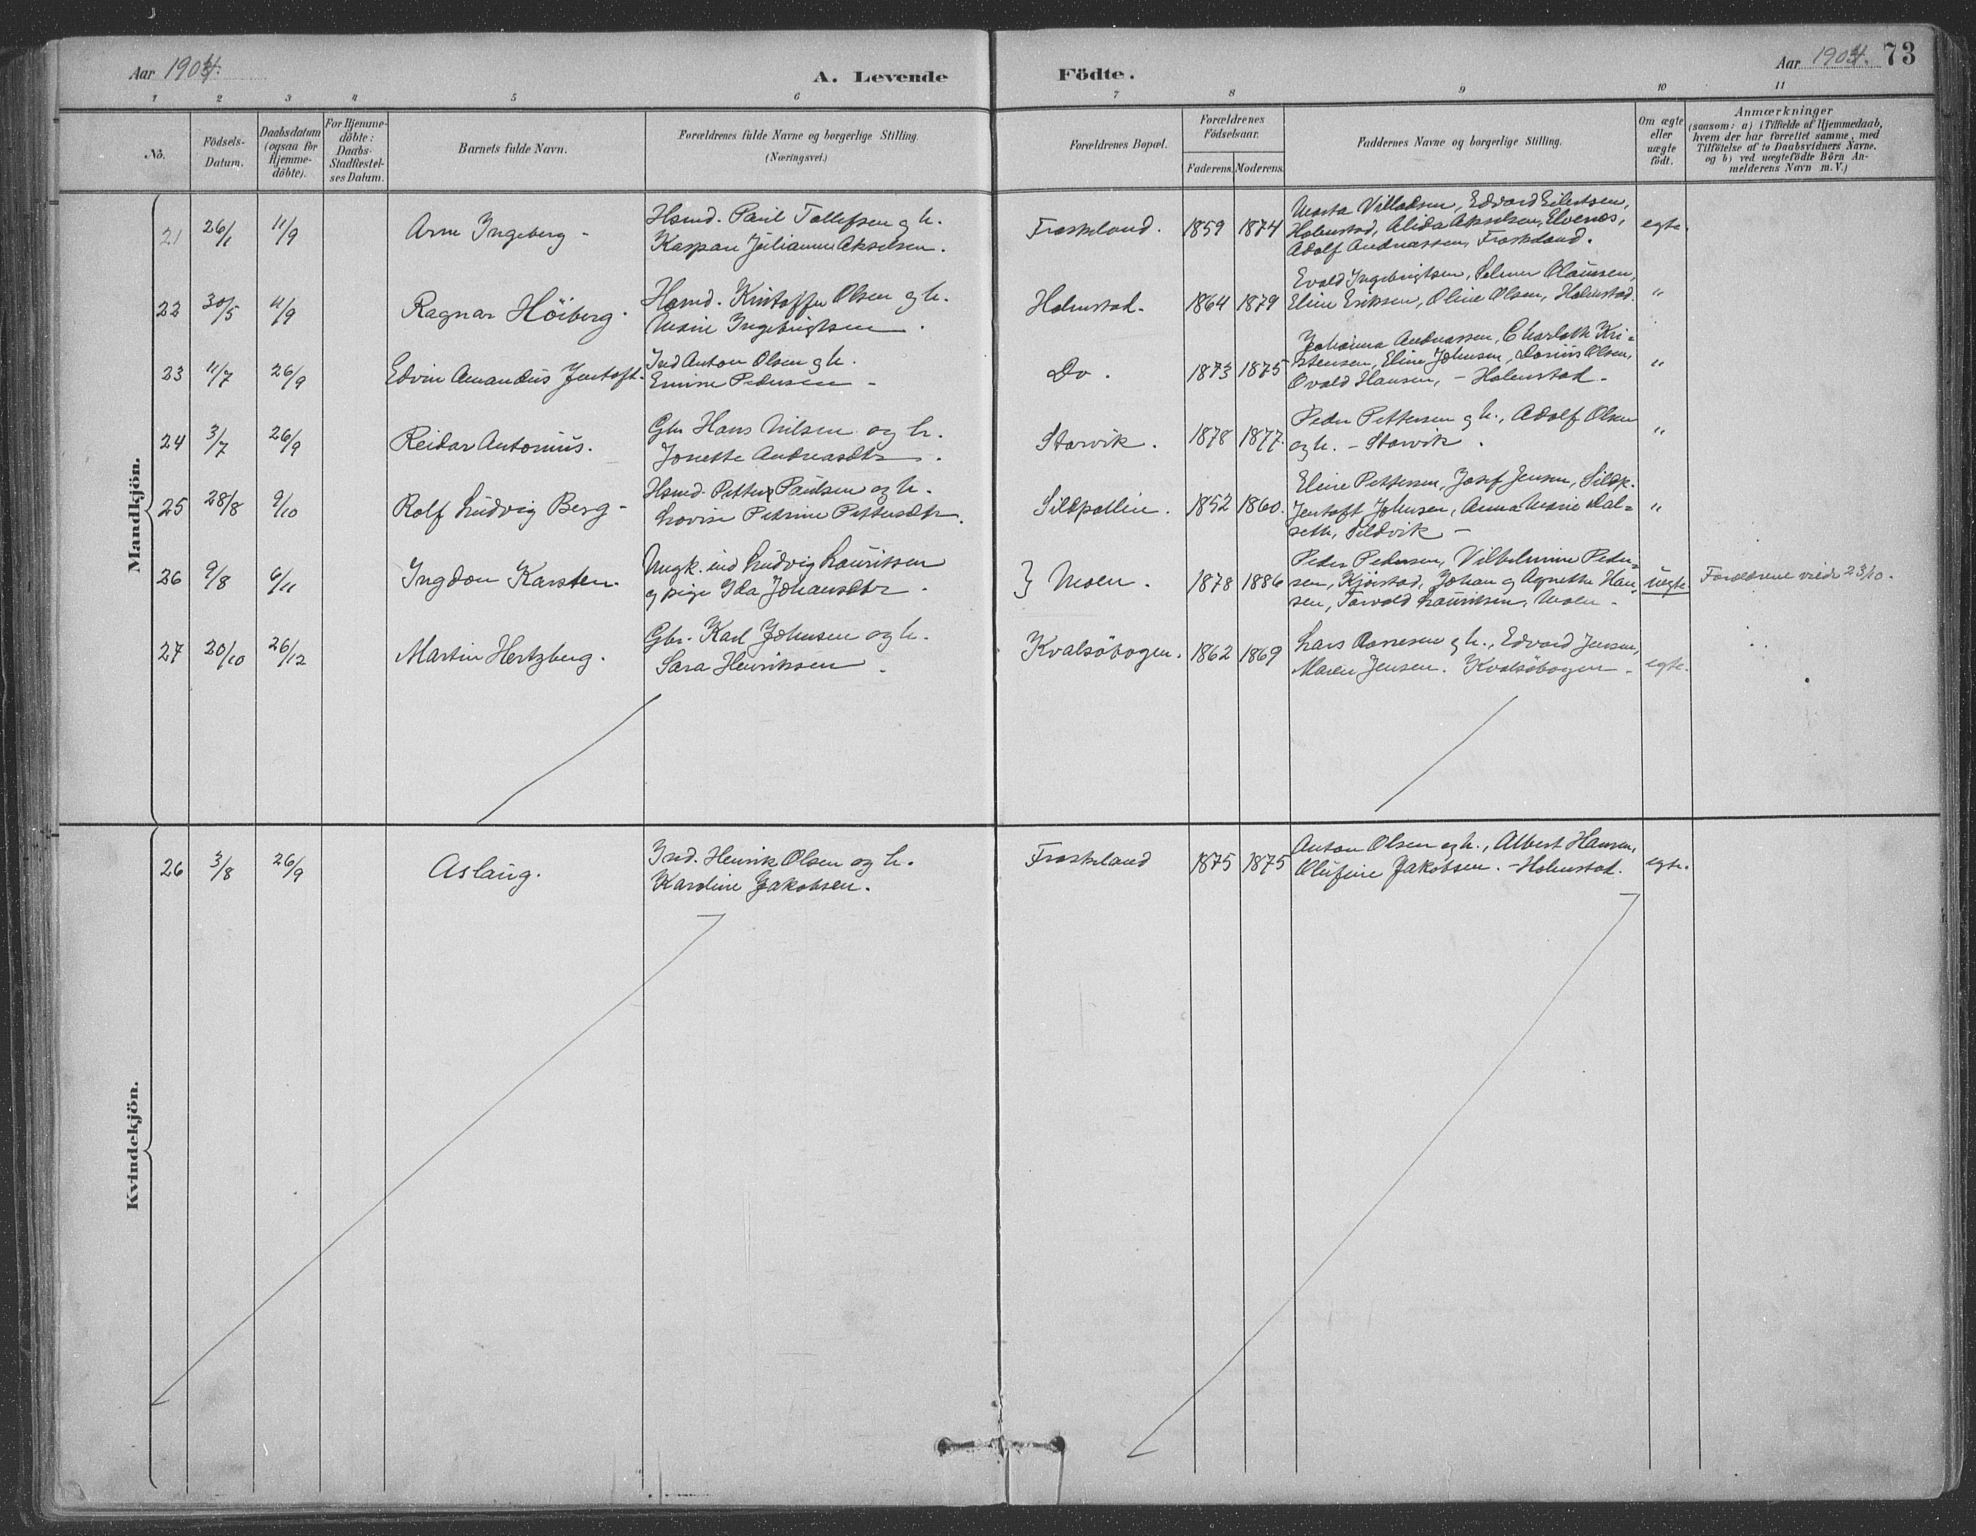 Aar 1904.
A. Levende Födte.
Aar 1904. 73
1 2 3 4 5 6 7 8 9 10 11
No.
Födsels-
Datum.
Daabsdatum
(ogsaa for
Hjemme-
döbte).
For Hjemme-
döbte:
Daabs-
Stadfæstel-
ses Datum.
Barnets fulde Navn.
Forældrenes fulde Navne og borgerlige Stilling.
(Næringsvei.)
Forældrenes Bopæl.
Forældrenes
Födselsaar.
Faderens. Moderens.
Faddernes Navne og borgerlige Stilling.
Om ægte
eller
uægte
födt.
Anmærkninger
(saasom: a) i Tilfælde af Hjemmedaab,
hvem der har forrettet samme, med
Tilföielse af to Daabsvidners Navne,
og b) ved uægtefödte Börn An-
melderens Navn m. V.)
Mandkjön.
21 26/1 11/9
Arne Ingeberg -
Hsmd. Paul Tollefsen og h.
Kaspara Julianne Akselsen.
Froskeland. 1859 1874
Marta Villadsen, Edvard Eilertsen,
Holmstad, Alida Akselsen, Elvenes,
Adolf Andreassen, Froskeland.
egte.
22 30/5 4/9
Ragnar Höiberg.
Hsmd. Kristoffer Olsen og h.
Marie Ingebrigtsen.
Holmstad. 1864 1879
Evald Ingebrigtsen, Selmer Olaussen,
Eline Eriksen, Oline Olsen, Holmstad.
"
23 11/7 26/9
Edvin Amandus Jentoft.
Ind Anton Olsen og h.
Emine Pedersen -
Do. 1873 1875
Johanna Andreassen, Charlotte Kri-
stensen, Eline Johnsen, Darius Olsen,
Ovald Hansen, - Holmstad.
"
24 3/7 26/9
Reidar Antonius.
Gbr Hans Nilsen og h.
Jonette Andreasdtr.
Storvik. 1878 1877.
Peder Pettersen og h., Adolf Olsen
og h. - Storvik.
"
25 28/8 9/10
Rolf Ludvig Berg -
Hsmd. Petter Paulsen og h.
Lovise Petrine Pettersdtr.
Sildpollen. 1852 1860.
Eline Pettersen, Josef Jensen, Sildp.
Jentoft Johnsen, Anna Marie Dal-
seth, Sildvik -
"
26 9/8 6/11
Ingdon Karsten.
Ungk. ind Ludvig Lauritssen
og pige Ida Johansdtr.
} Moen. 1878 1886
Peder Pedersen, Vilhelmine Peder-
sen, Kjörstad, Johan og Agnette Han-
sen, Torvald Lauritsen, Moen.
uegte.
Forældrene viede 23/10.
27 20/10 26/12
Martin Hertzberg.
Gbr. Karl Johnsen og h.
Sara Henriksen.
Kvalsöbogen. 1862 1869
Lars Aanesen og h., Edvard Jensen,
Maren Jensen. Kvalsöbogen.
egte.
Kvindekjön.
26 3/8 26/9
Aslaug.
Ind. Henrik Olsen og h.
Karoline Jakobsen.
Froskeland 1875 1875
Anton Olsen og h., Albert Hansen,
Olufine Jakobsen. - Holmstad.
egte.